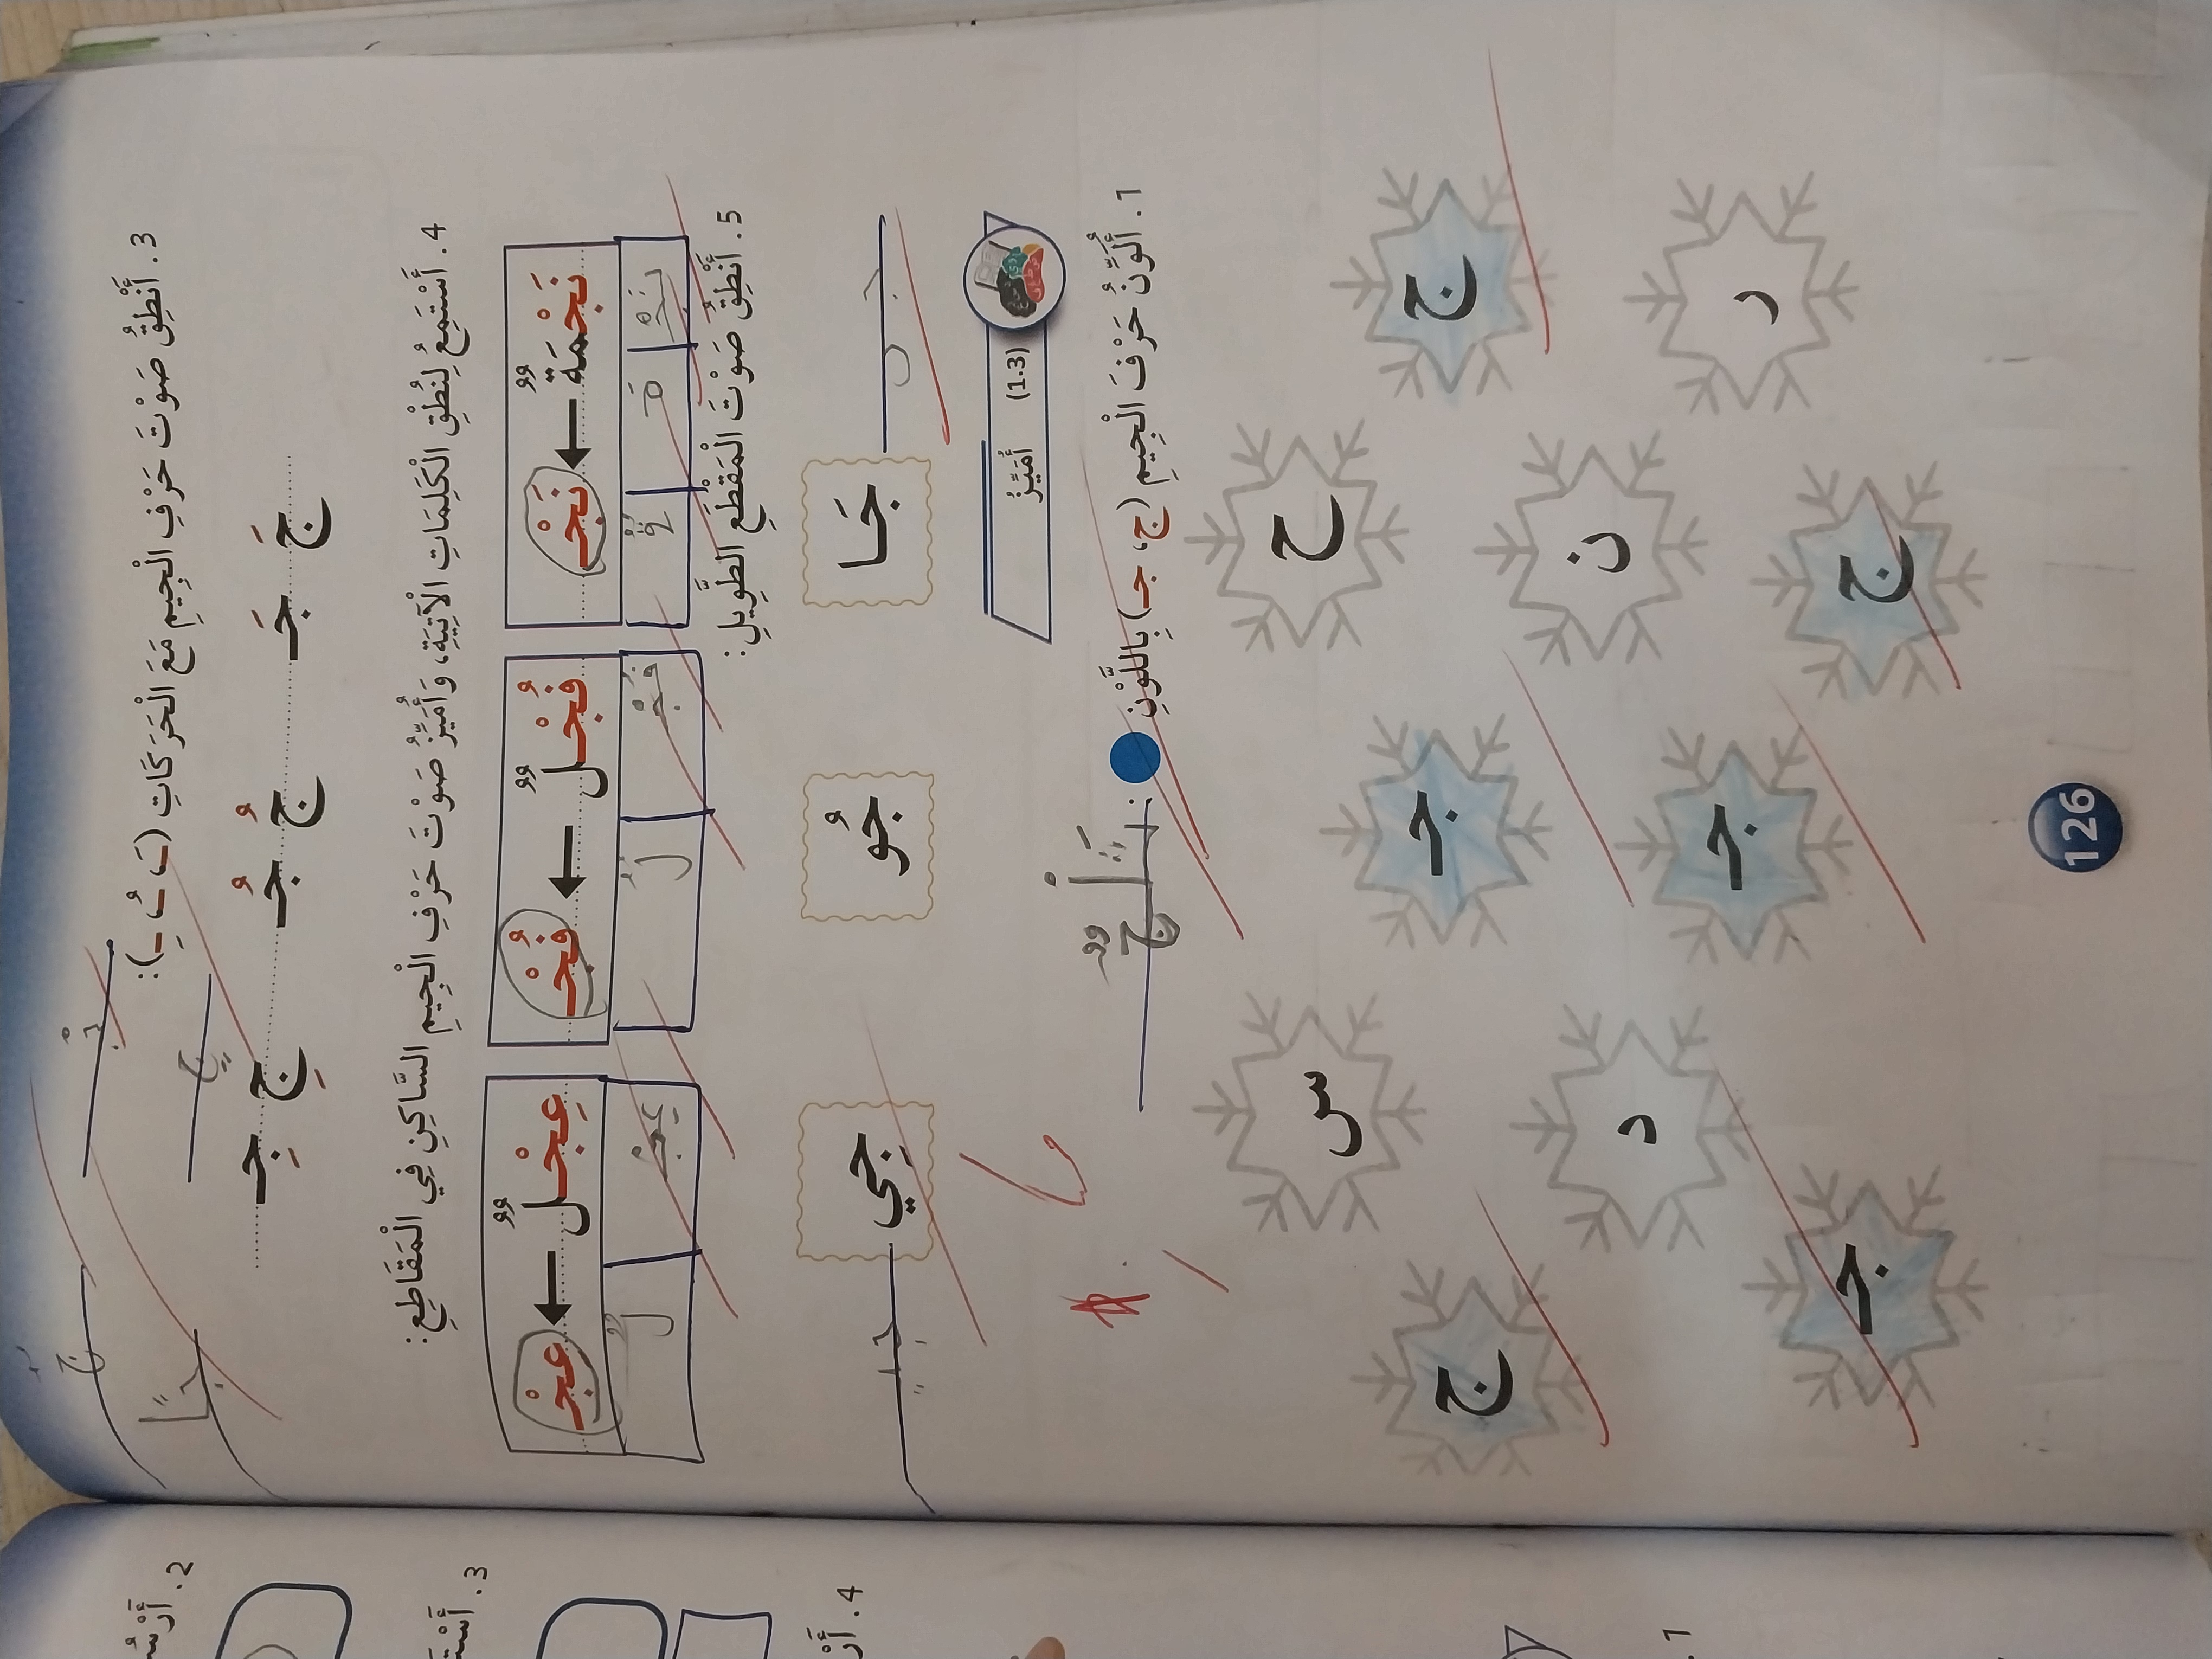 3. أَنْطِقُ صَوْتَ حَرْفِ الْجِيمِ مَعَ الْحَرَكَاتِ (ـَ ـُ ـِ):
جَ جَـ جُ جُـ جِ جِـ
4. أَسْتَمِعُ لِنُطْقِ الْكَلِمَاتِ الْآتِيَةِ، وَأُمَيِّزُ صَوْتَ حَرْفِ الْجِيمِ السَّاكِنِ فِي الْمَقَاطِعِ:
نَجْمَةٌ نَجْـ فُجْلٌ فُجْـ عِجْلٌ عِجْـ
نَجْـ مَـ ةٌ فُجْـ لٌ عِجْـ لٌ
5. أَنْطِقُ صَوْتَ الْمَقْطَعِ الطَّوِيلِ:
جَا جُو جِي
أُمَيِّزُ (1.3)
ثَلْجٌ
1. أُلَوِّنُ حَرْفَ الْجِيمِ (ج، جـ) بِاللَّوْنِ :
ح س
ج جـ ج
ن د
ر جـ
ج جـ
126
2. أَرْسُ
3. أَسْتَ
4. أَرْ
1.